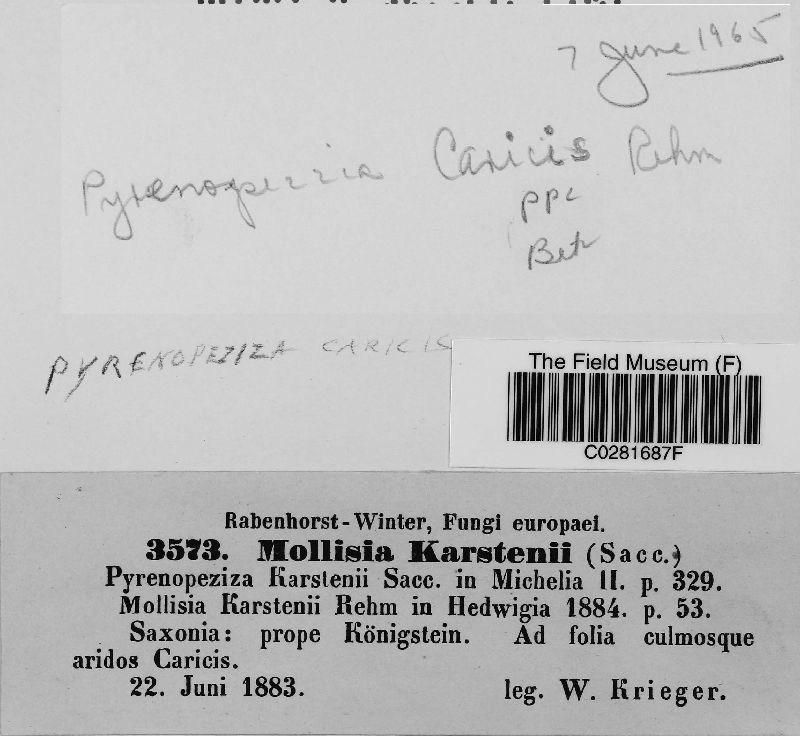 7 June 1965
Pyrenopezzia Caricis Rehm
PYRENOPEZIZA CARICIS
The Field Museum (F)
C0281687F
Rabenhorst-Winter, Fungi europaei.
3573. Mollisia Karstenii (Sacc.)
Pyrenopeziza Karstenii Sacc. in Michelia II. p. 329.
Mollisia Karstenii Rehm in Hedwigia 1884. p. 53.
Saxonia: prope Königstein. Ad folia culmosque
aridos Caricis.
22. Juni 1883. leg. W. Krieger.